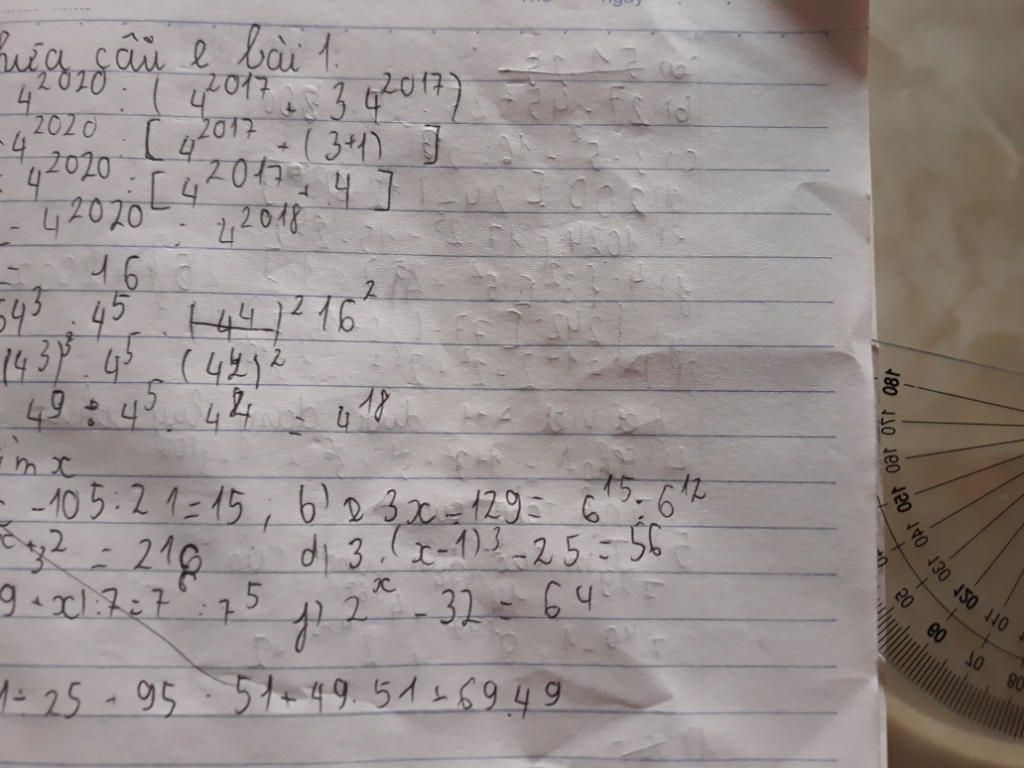 câu e bài 1.
4^2020 : ( 4^2017 + 3.4^2017)
4^2020 : [ 4^2017 . (3+1) ]
= 4^2020 : [ 4^2017 . 4 ]
= 4^2020 : 4^2018
= 16
64^3 . 4^5 . 16^2
(4^3)^3 . 4^5 . (4^2)^2
4^9 . 4^5 . 4^4 = 4^18
ìm x
- 105 : 21 = 15 ; b) 3x - 129 = 6^15 : 6^12
3^2 = 216 d) 3 . (x-1)^3 - 25 = 56
9 + x) : 7 = 7^6 : 7^5 f) 2^x - 32 = 64
25 - 95 . 51 + 49 . 51 + 69.49
180
170
160
150
140
130
150
110
50
60
70
80